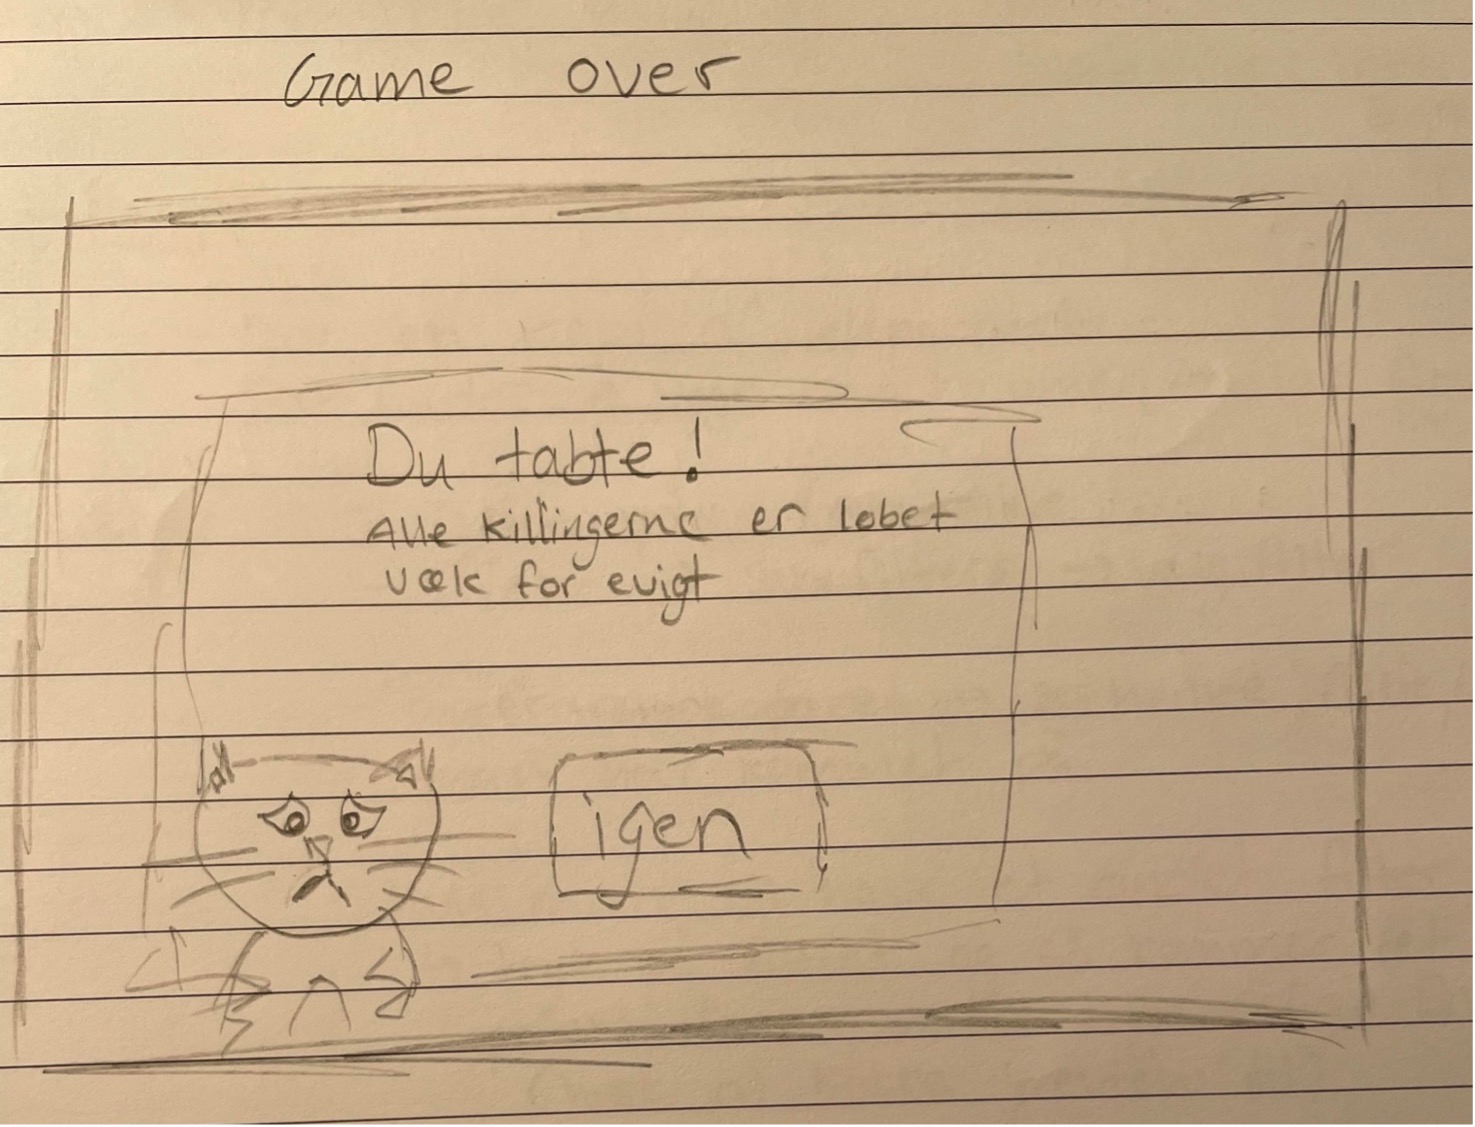 Game over
Du tabte!
Alle killingerne er løbet
væk for evigt
igen